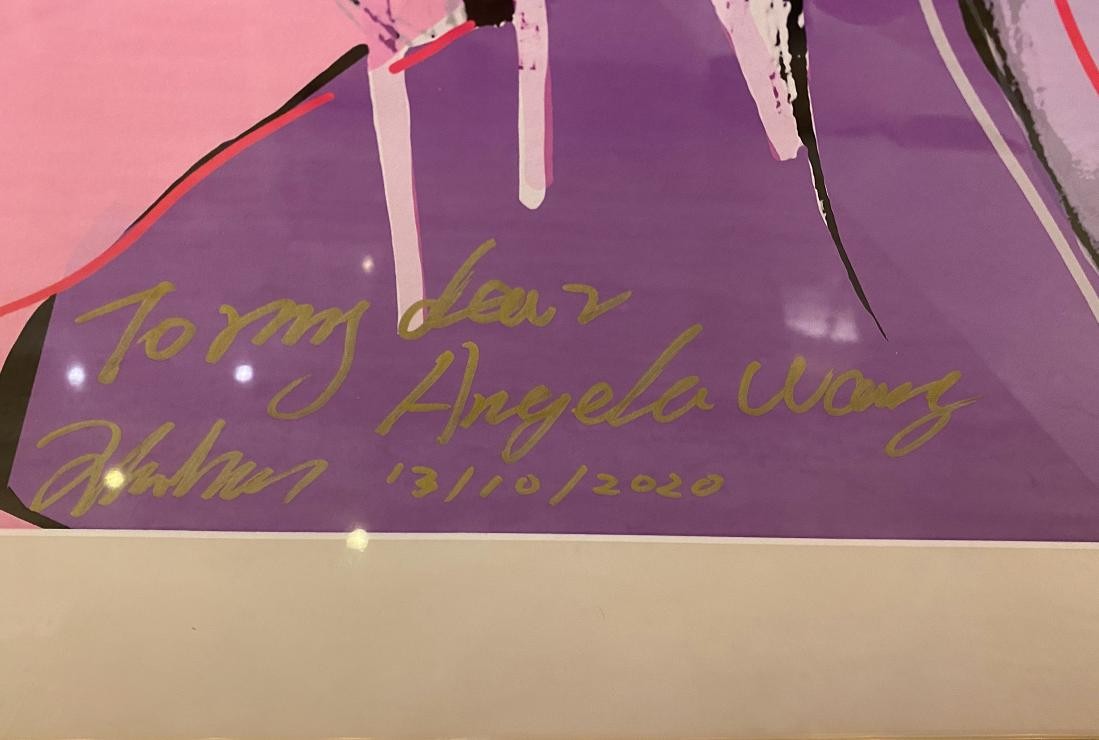 To my dear
Angela Wang
13/10/2020